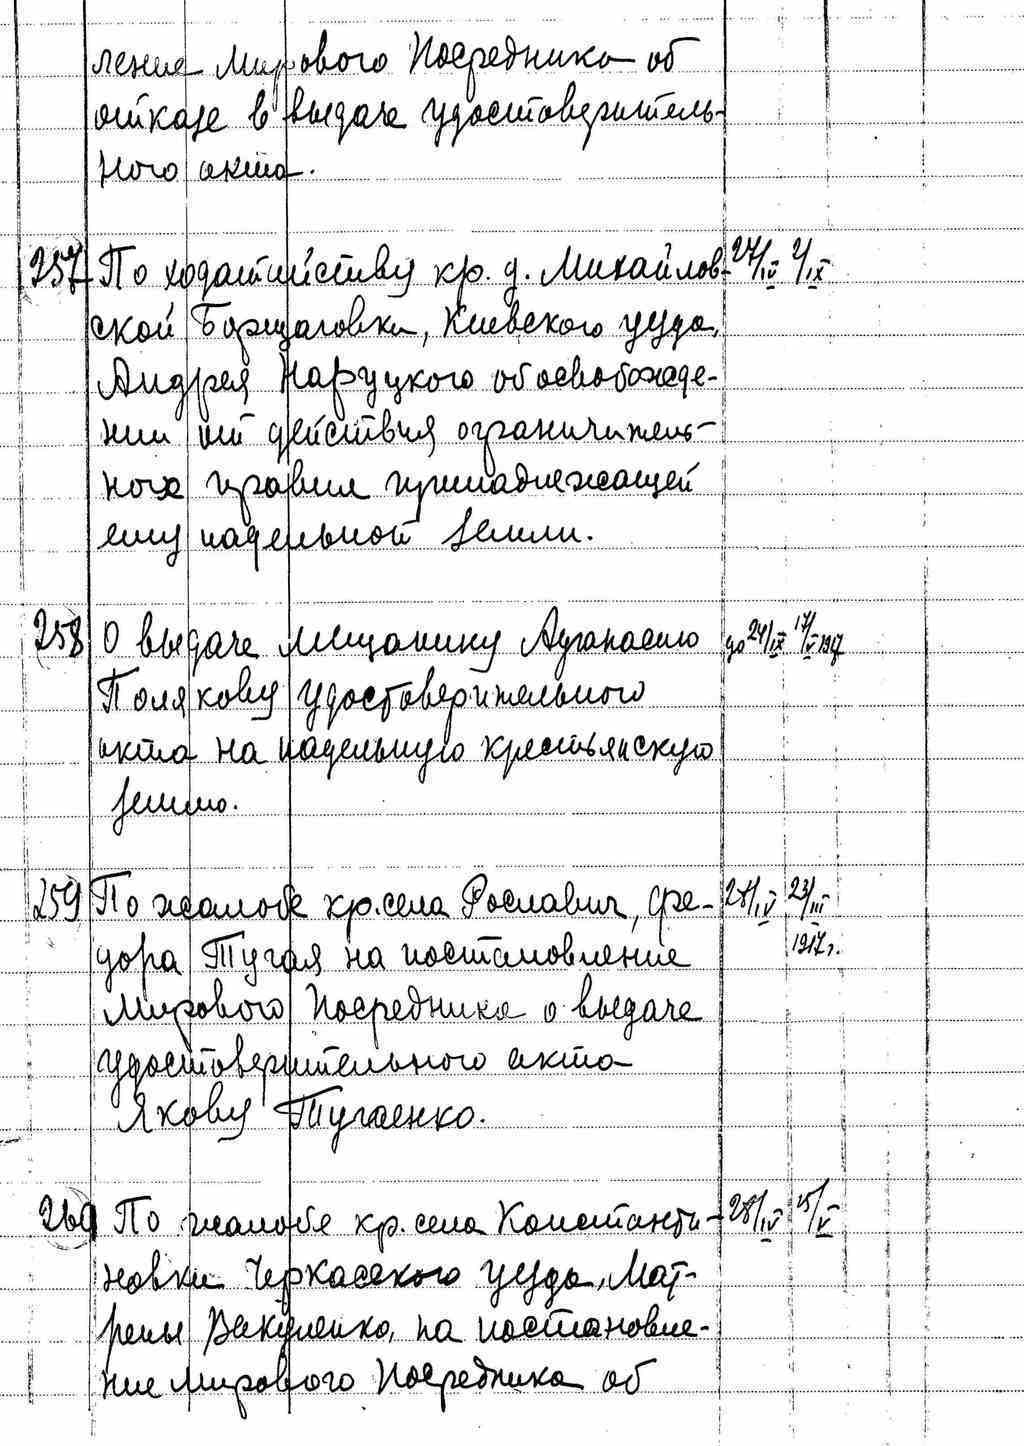 ление Мирового Посредника об
отказе в выдаче удостоверитель-
ного акта.
257 По ходатайству кр. д. Михайлов- 27/IV 2/IX
ской Борщаговки, Киевского уезда,
Андрея Наруцкого об освобожде-
нии от действия ограничитель-
ного правил принадлежащей
ему надельной земли.
258 О выдаче мещанину Афанасию до 24/IX 17/V 1917
Полякову удостоверительного
акта на надельную крестьянскую
землю.
259 По жалобе кр. села Рославич, Фе- 28/IV 23/III
дора Тугая на постановление 1917 г.
Мирового Посредника о выдаче
удостоверительного акта
Якову Тугаенко.
260 По жалобе кр. села Константи- 28/IV 15/V
новки Черкасского уезда, Мат-
рены Вакуленко, на постановле-
ние Мирового Посредника об